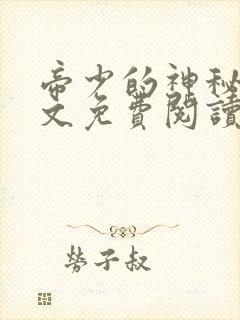 帝少的神秘
文免費閱讀
勞子叔